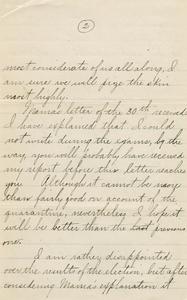 (2)
most considerate of us all along, I
am sure we will prize the skin
most highly.
Mama's letter of the 30th received
I have explained that I could
not write during the exams, by the
way you will probably have received
my report before this letter reaches
you. Although it cannot be more
than fairly good on account of the
quarantine, nevertheless I hope it
will be better than the last previous
ones.
I am rather disappointed
over the results of the election, but after
considering Mama's explanation it